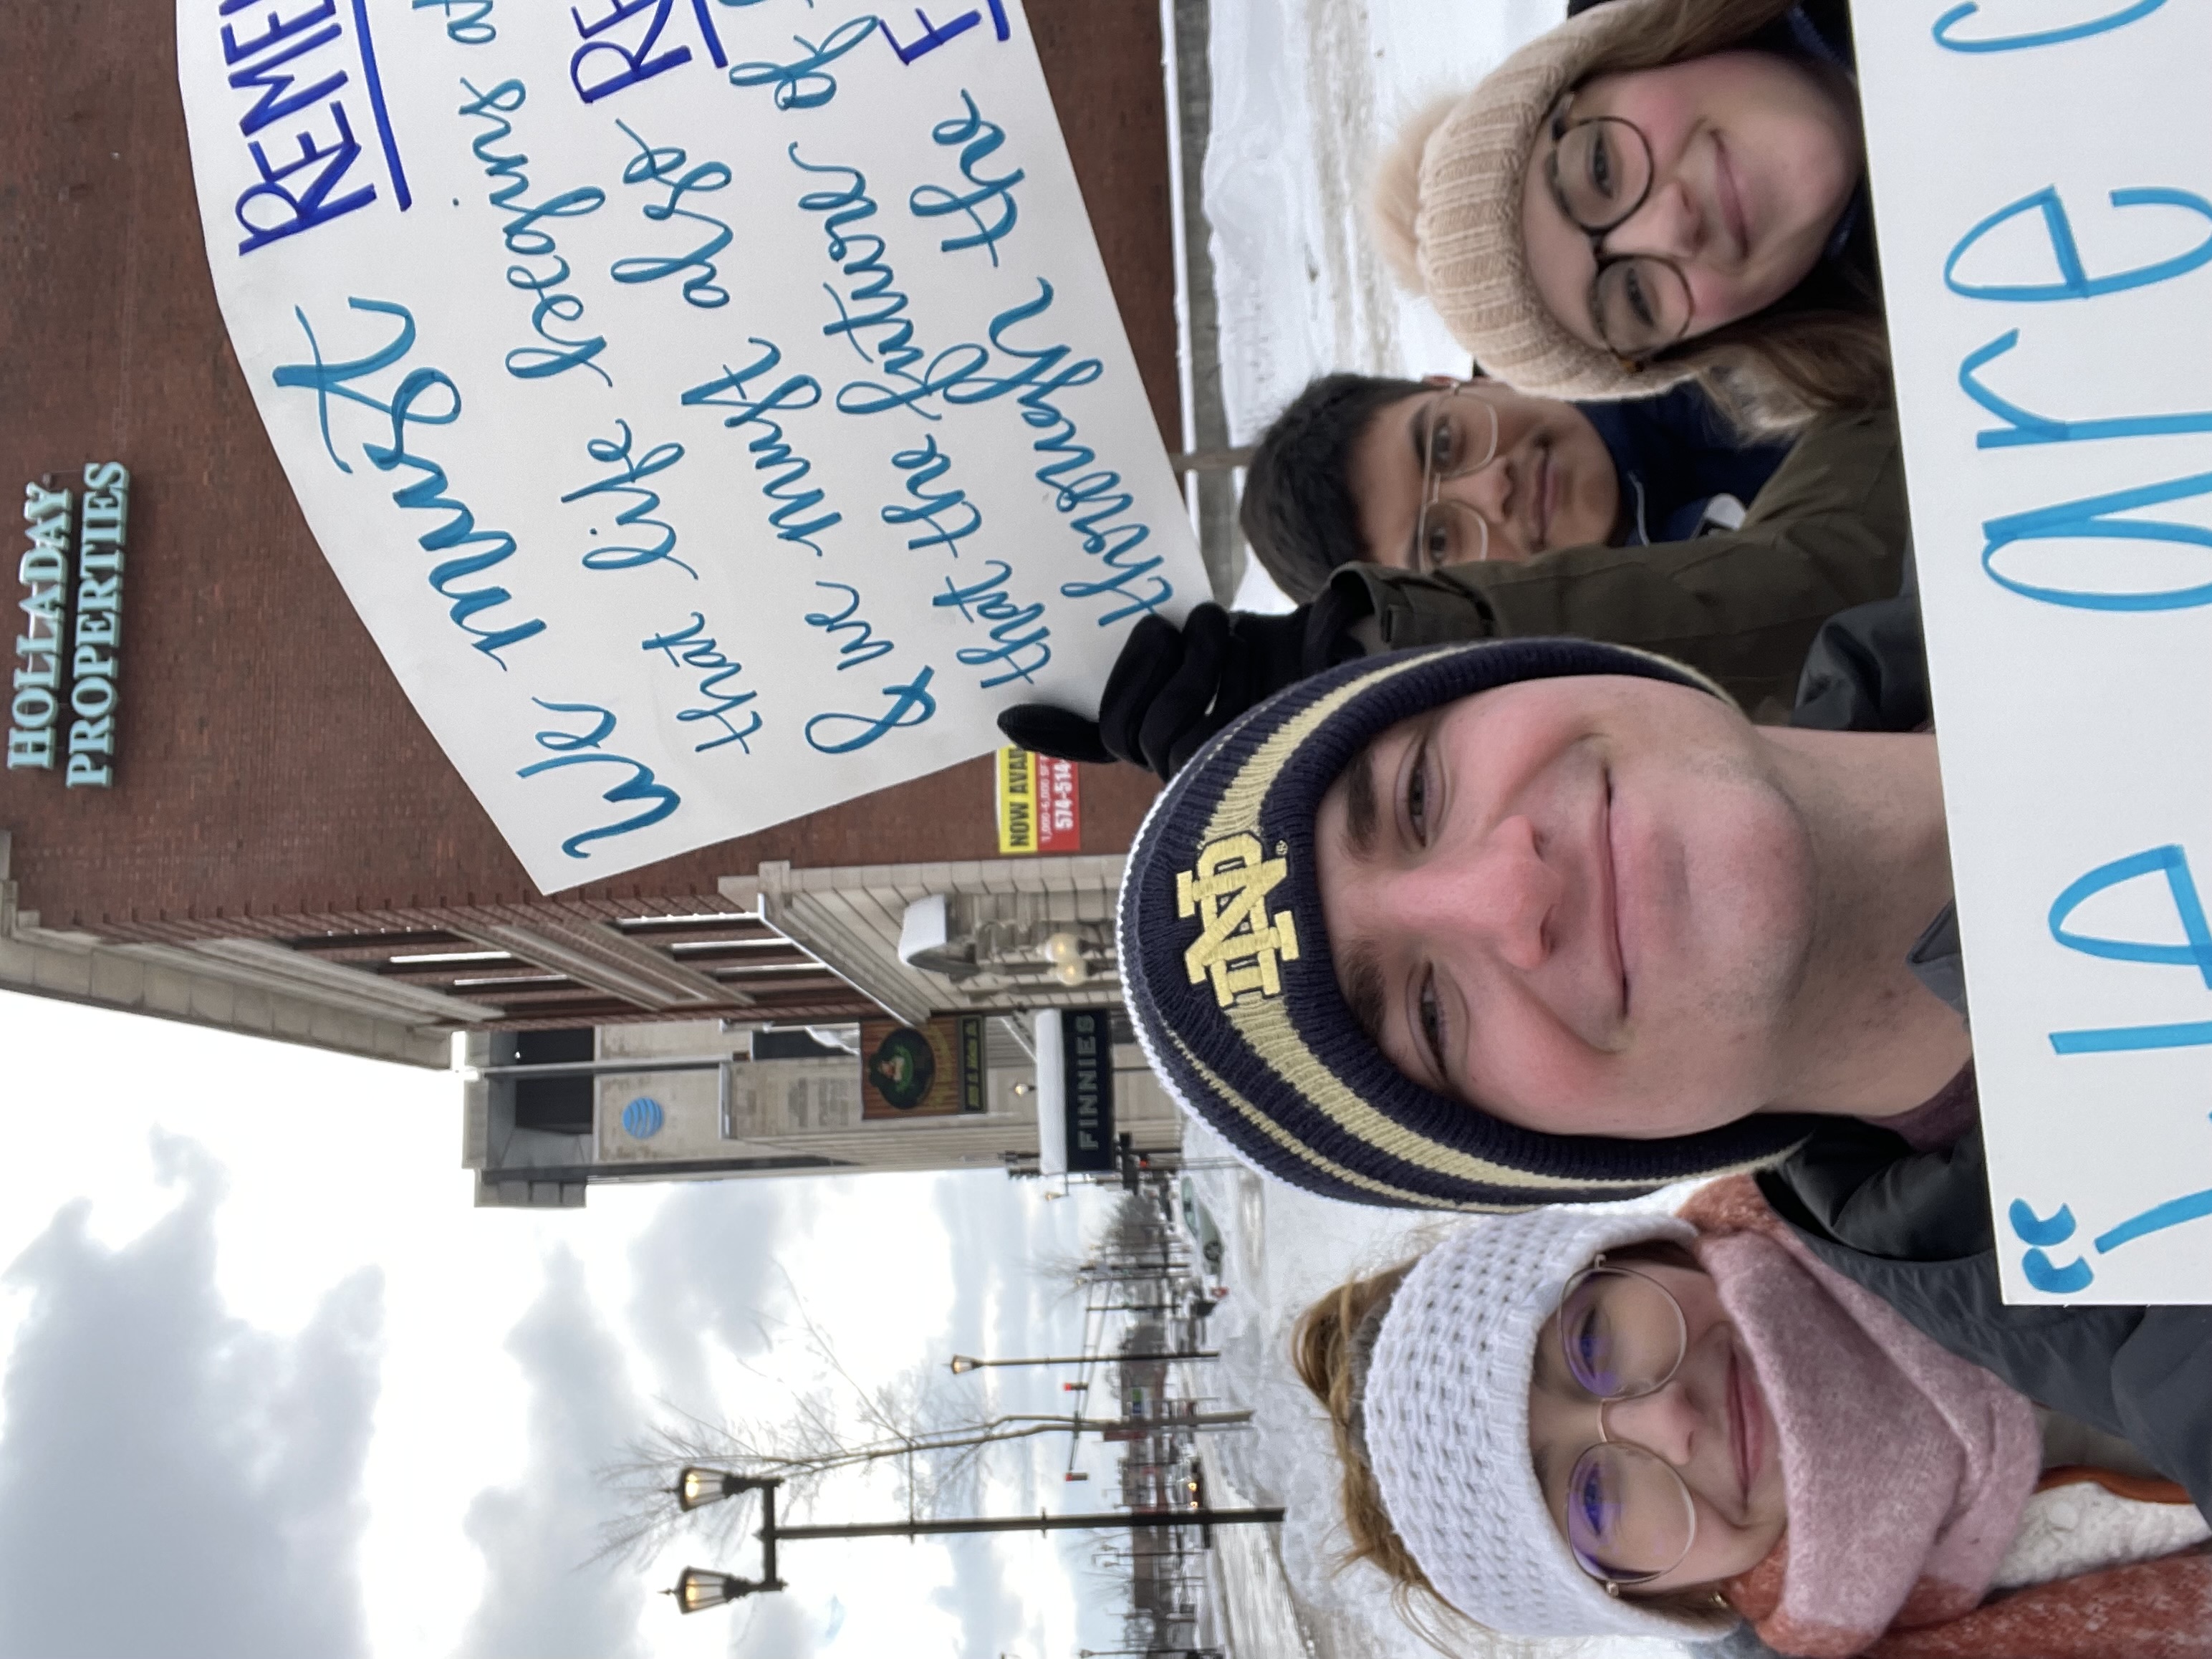 HOLLADAY
PROPERTIES
We must REME
that life begins at
& we must also RE
that the future of
through the F
NOW AVAI
1,000-6,000 SF
574-514-
FINNIES
ND
®
"We are